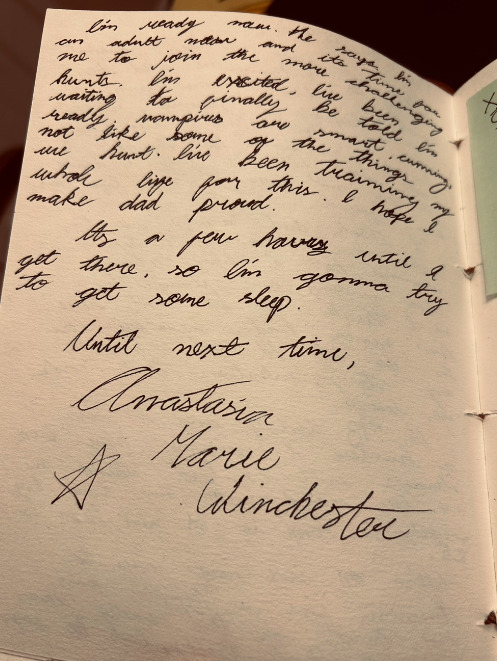 I'm ready now. He says I'm
an adult now and its time for
me to join the more challenging
hunts. I'm excited, I've been
waiting to finally be told I'm
ready vampires are smart, cunning,
not like some of the things
we hunt. I've been training my
whole life for this. I hope I
make dad proud.
Its a few hours until I
get there, so I'm gonna try
to get some sleep.
Until next time,
Anastasia
Marie
Winchester